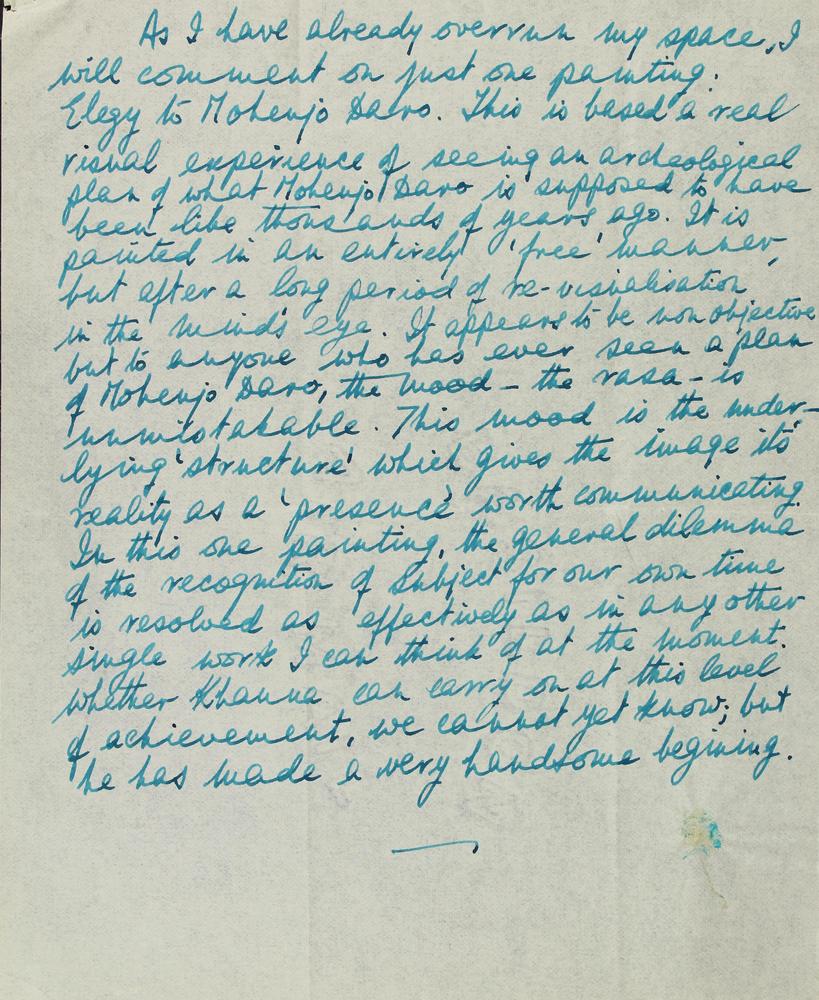 As I have already overrun my space, I
will comment on just one painting.
Elegy to Mohenjo Daro. This is based a real
visual experience of seeing an archaeological
plan of what Mohenjo Daro is supposed to have
been like thousands of years ago. It is
painted in an entirely 'free' manner,
but after a long period of re-visualisation
in the mind's eye. It appears to be non objective
but to anyone who has ever seen a plan
of Mohenjo Daro, the mood - the rasa - is
unmistakable. This mood is the under-
lying 'structure' which gives the image its
reality as a 'presence' worth communicating.
In this one painting, the general dilemma
of the recognition of subject for our own time
is resolved as effectively as in any other
single work I can think of at the moment.
Whether Khanna can carry on at this level
of achievement, we cannot yet know; but
he has made a very handsome begining.